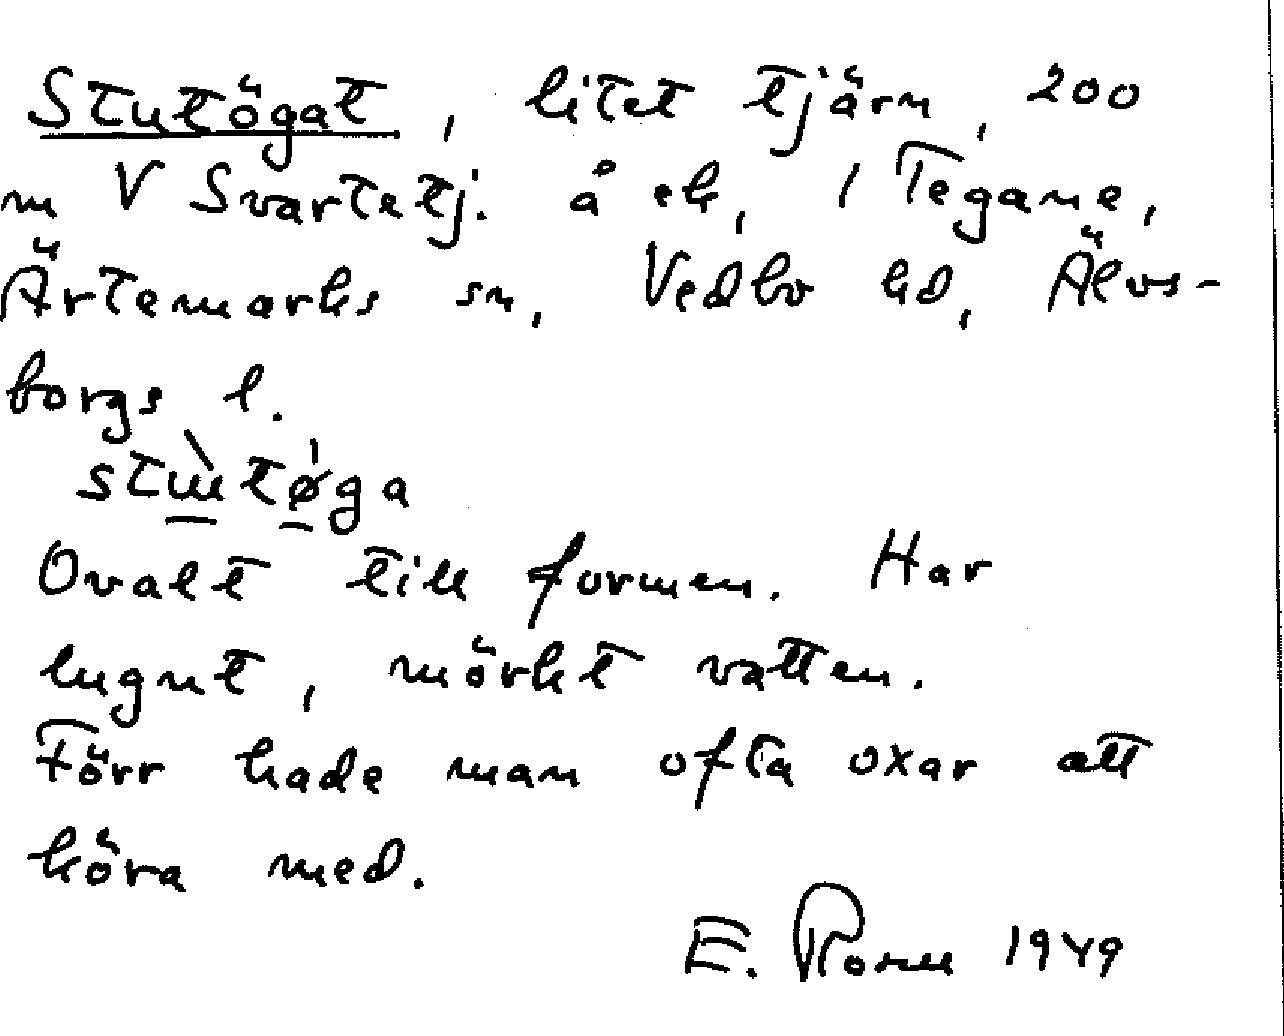 Stutögat, litet tjärn, 200
m V Svartetj. å ek, i Tegane,
Ärtemarks sn, Vedbo hd, Älvs-
borgs l.
Ovalt till formen. Har
lugnt, mörkt vatten.
Förr hade man ofta oxar att
köra med.
E. 1949